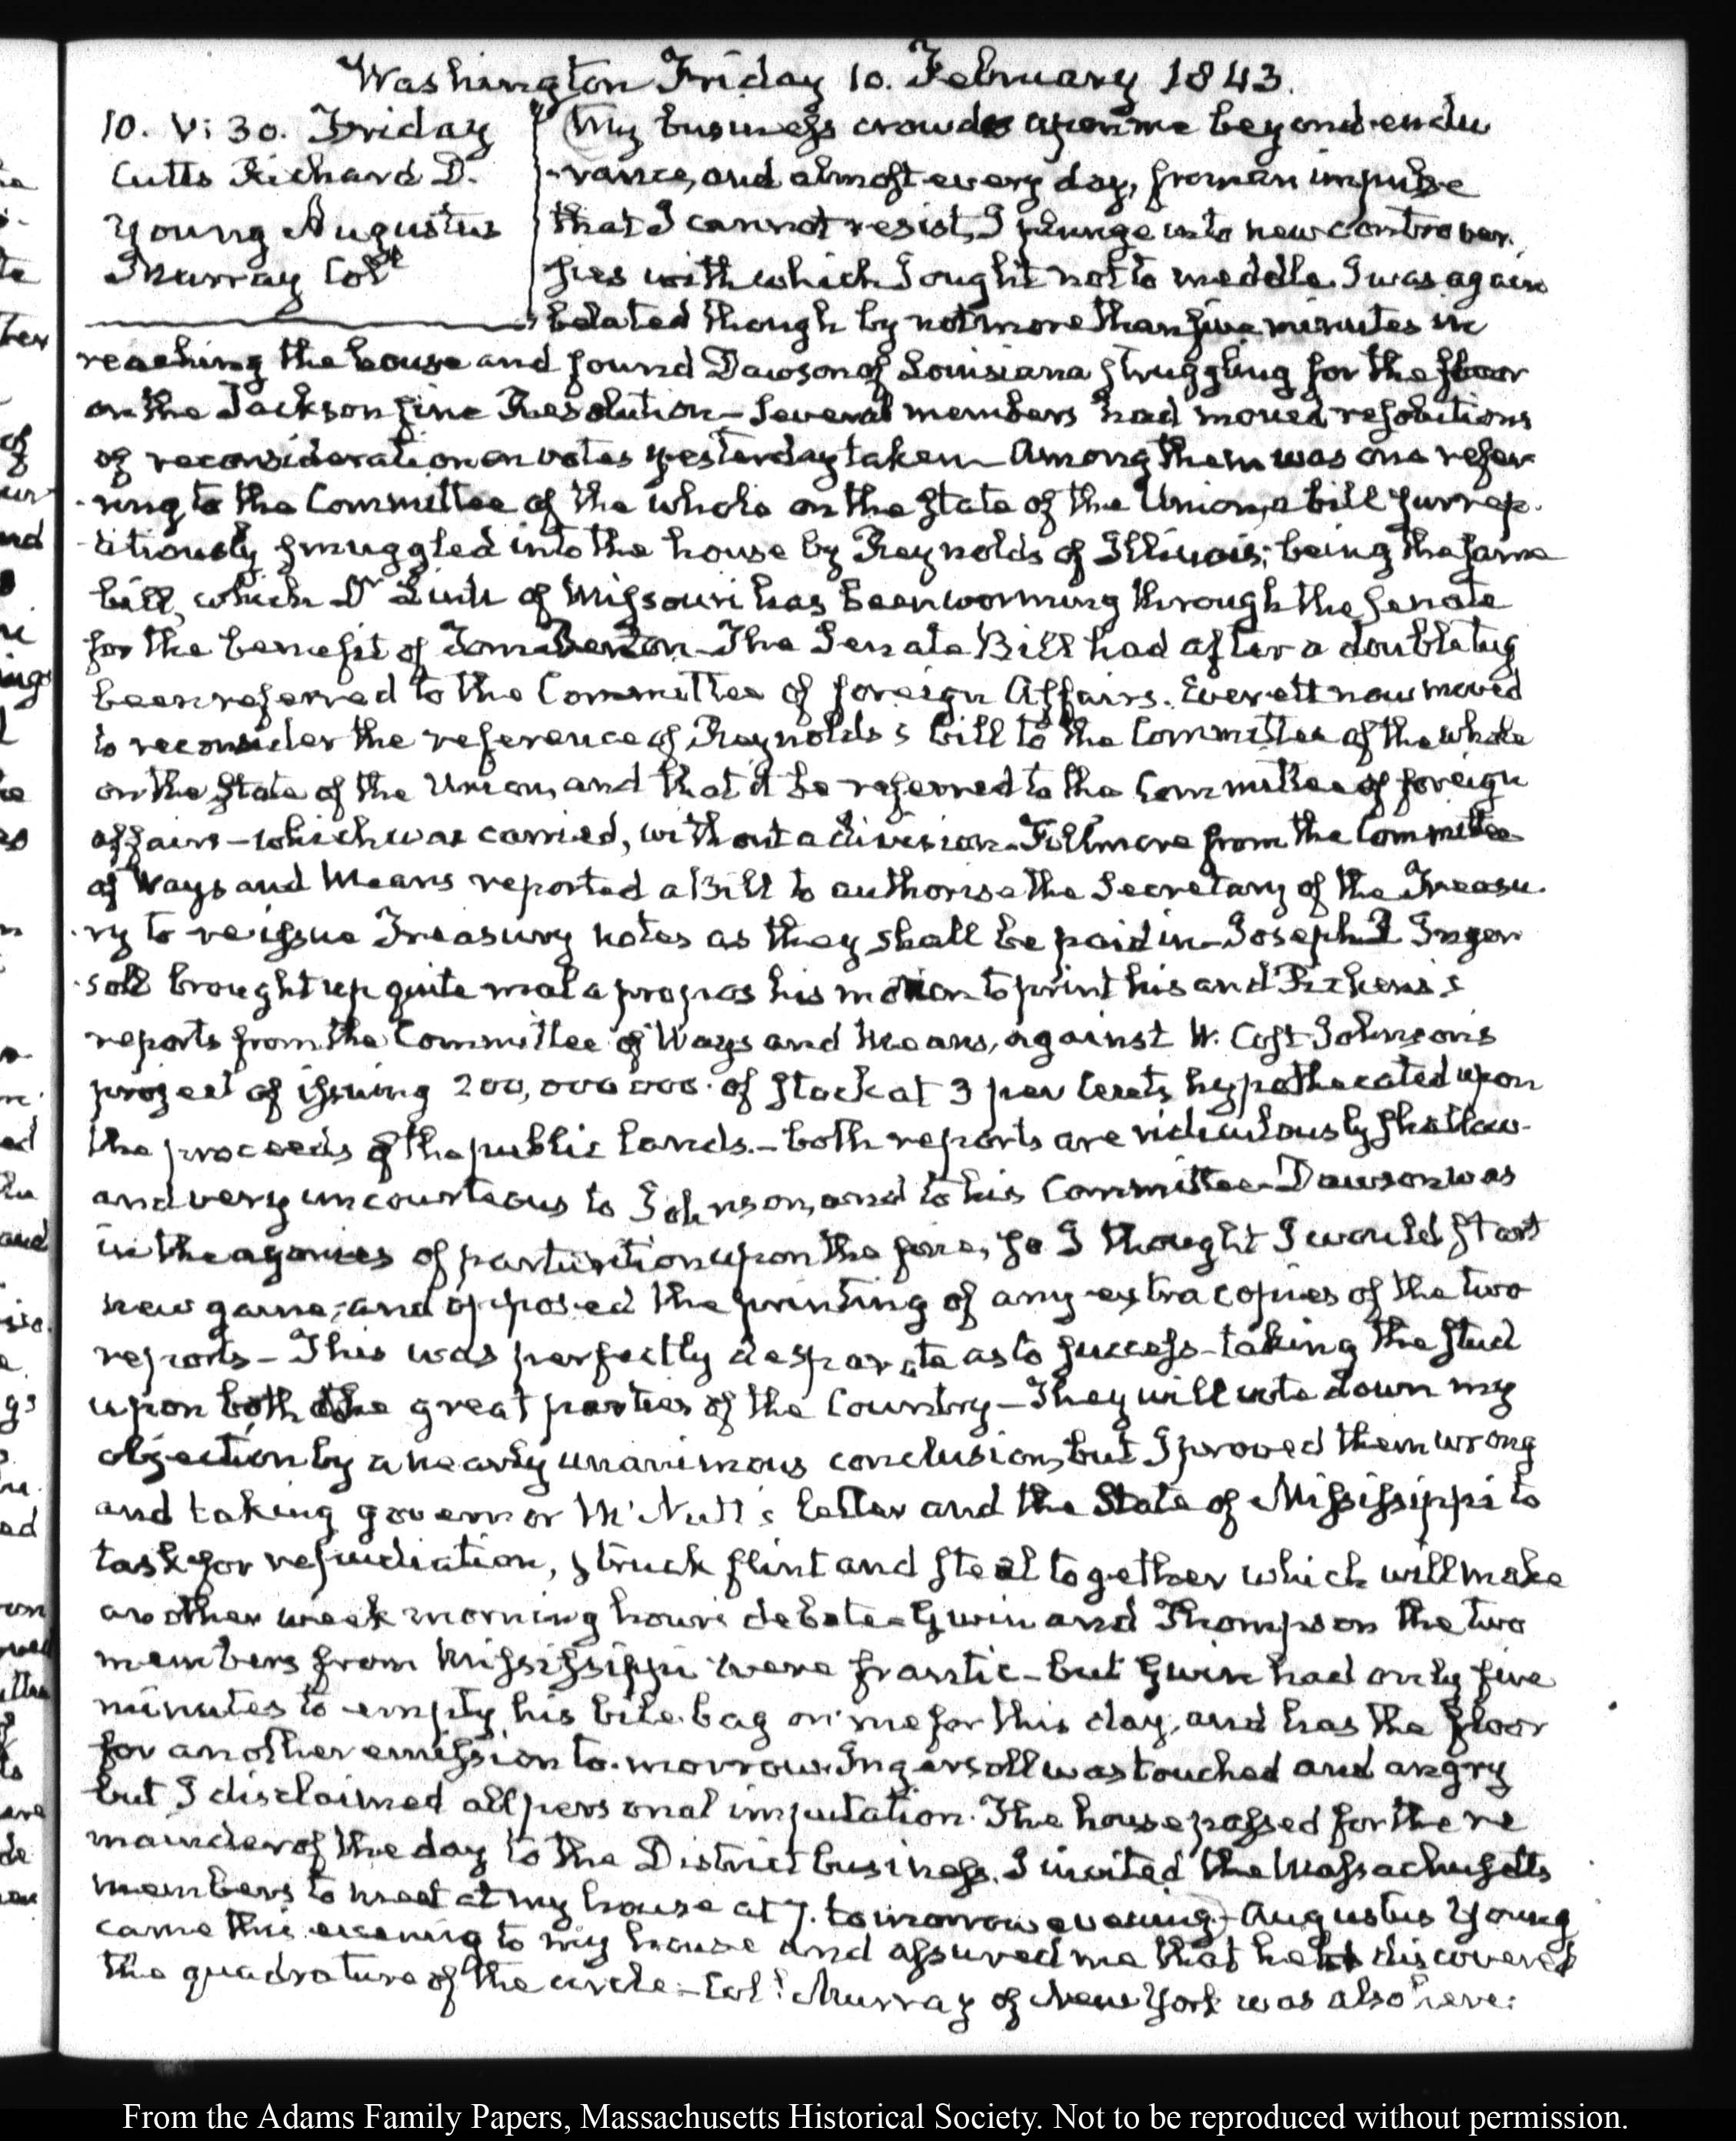 Washington Friday 10. February 1843.
10. V: 30. Friday
Cutts Richard D.
Young Augustus
Murray Colt
My business crowds upon me beyond endu
rance, and almost every day, from an impulse
that I cannot resist, I plunge into new controver-
sies with which I ought not to meddle. I was again
belated though by not more than five minutes in
reaching the house and found Dawson of Louisiana struggling for the floor
on the Jackson fine Resolution – Several members had moved resolutions
of reconsideration on votes yesterday taken – Among them was one refer
ring to the Committee of the whole on the State of the Union, a bill surrep-
titiously smuggled into the house by Reynolds of Illinois; being the same
bill, which Dr Linn of Missouri has been worming through the Senate
for the benefit of Tom Benton – The Senate Bill had after a double tug
been referred to the Committee of foreign Affairs. Everett now moved
to reconsider the reference of Reynolds's bill to the Committee of the whole
on the State of the Union, and that it be referred to the Committee of foreign
affairs – which was carried, without a division – Fillmore from the Committee
of Ways and Means reported a Bill to authorise the Secretary of the Treasu-
ry to reissue Treasury notes as they shall be paid in – Joseph R Inger
soll brought up quite mal a propos his motion to print his and Pickens's
reports from the Committee of Ways and Means, against W. Cost Johnson's
project of issuing 200,000 000. of Stock at 3 per Cents, hypothecated upon
the proceeds of the public lands. – both reports are ridiculously shallow
and very uncourteous to Johnson, and to his Committee – Dawson was
in the agonies of parturition upon the fine, so I thought I would start
new game, and opposed the printing of any extra copies of the two
reports – This was perfectly desperate as to success – taking the stud
upon both the great parties of the Country – They will vote down my
objection by a nearly unanimous conclusion, but I proved them wrong
and taking governor McNutt's letter and the State of Mississippi to
task for repudiation, struck flint and steel together which will make
another week morning hour's debate – Gwin and Thompson the two
members from Mississippi were frantic – but Gwin had only five
minutes to empty his bile-bag on me for this day, and has the floor
for another emission to-morrow. Ingersoll was touched and angry
but I disclaimed all personal imputation. The house passed for the re
mainder of the day to the District business. I invited the Massachusetts
members to meet at my house at 7. tomorrow evening – Augustus Young
came this evening to my house and assured me that he discovered
the quadrature of the circle – Colt Murray of New York was also here:
From the Adams Family Papers, Massachusetts Historical Society. Not to be reproduced without permission.